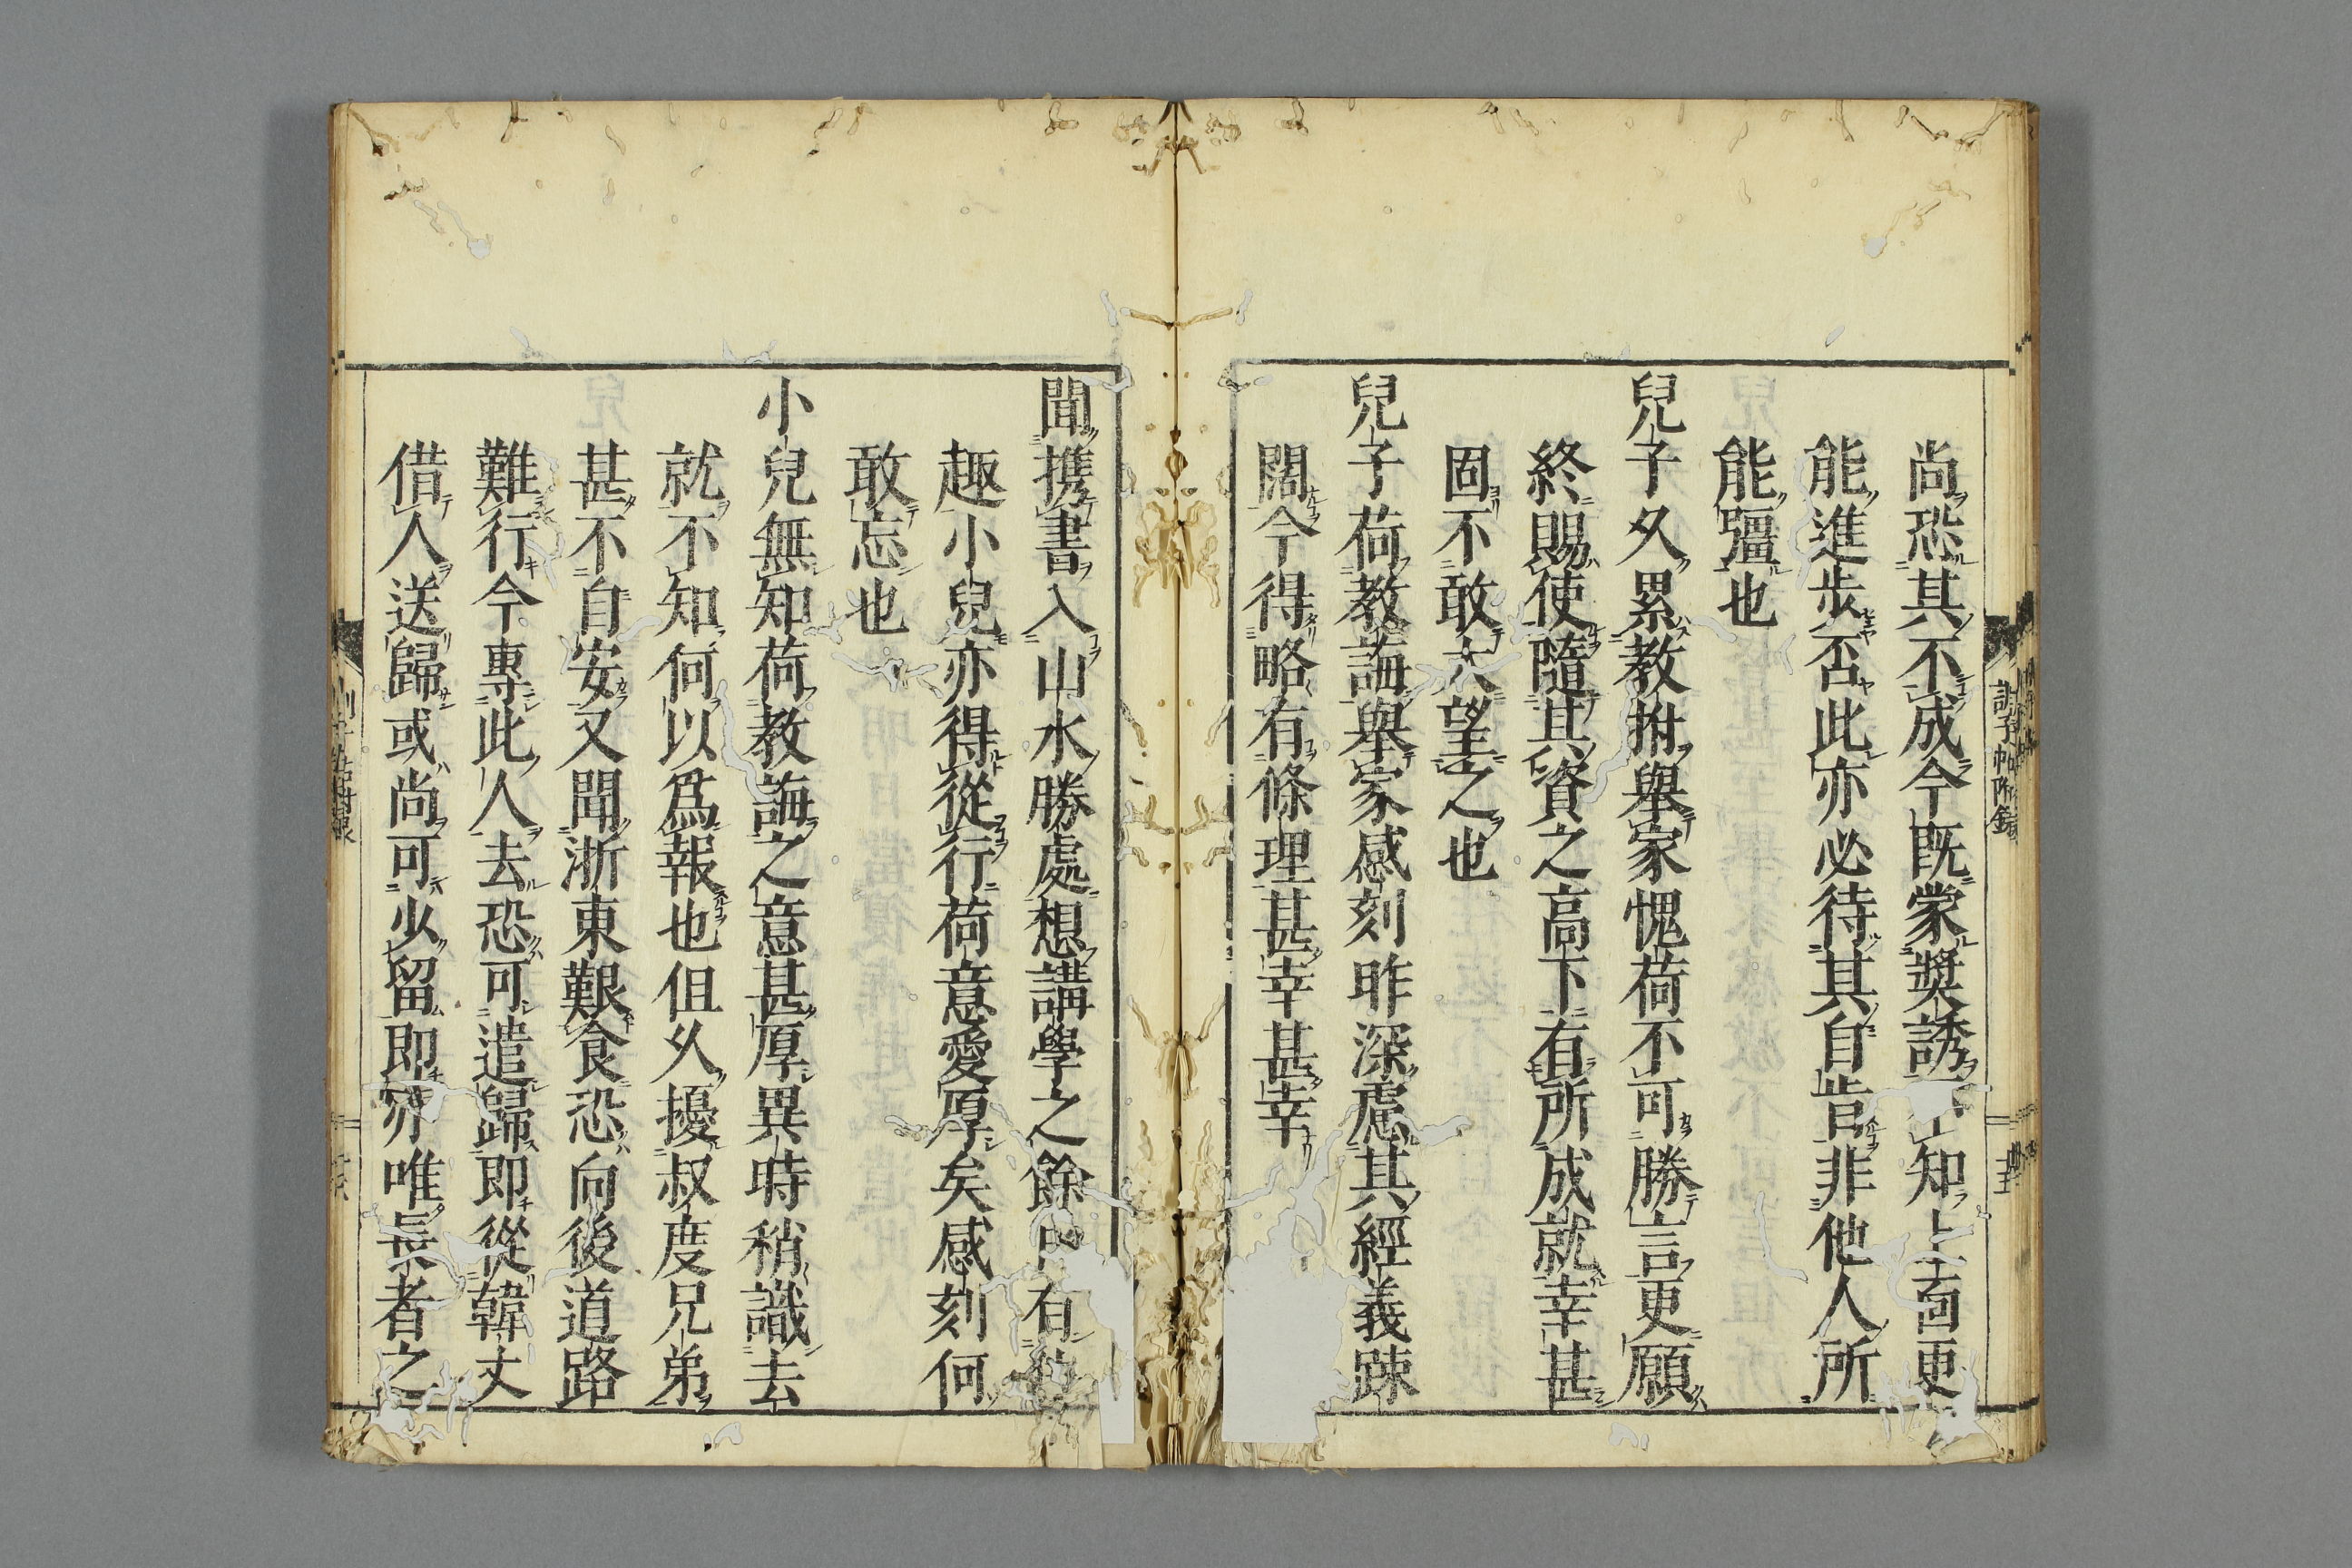 尚恐其不成今既蒙奬誘知上面更
能進步否此亦必待其自肯非他人所
能彊也
兒子久累教拊舉家愧荷不可勝言更願
終賜使隨其資之高下有所成就幸甚
固不敢大望之也
兒子荷教誨舉家感刻昨深慮其經義踈
闊今得略有條理甚幸甚幸
聞携書入山水勝處想講學之餘有
趣小兒亦得從行荷意愛厚矣感刻何
敢忘也
小兒無知荷教誨之意甚厚異時稍識去
就不知何以爲報也但久擾叔度兄弟
甚不自安又聞浙東艱食恐向後道路
難行今專此人去恐可遣歸即從韓丈
借人送歸或尚可少留即亦唯長者之